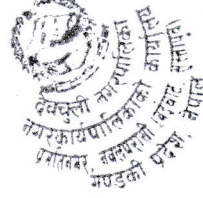 देवचुली नगरपालिका
नगरकार्यपालिकाको कार्यालय
प्रगतिनगर, नवलपरासी
गण्डकी प्रदेश, नेपाल